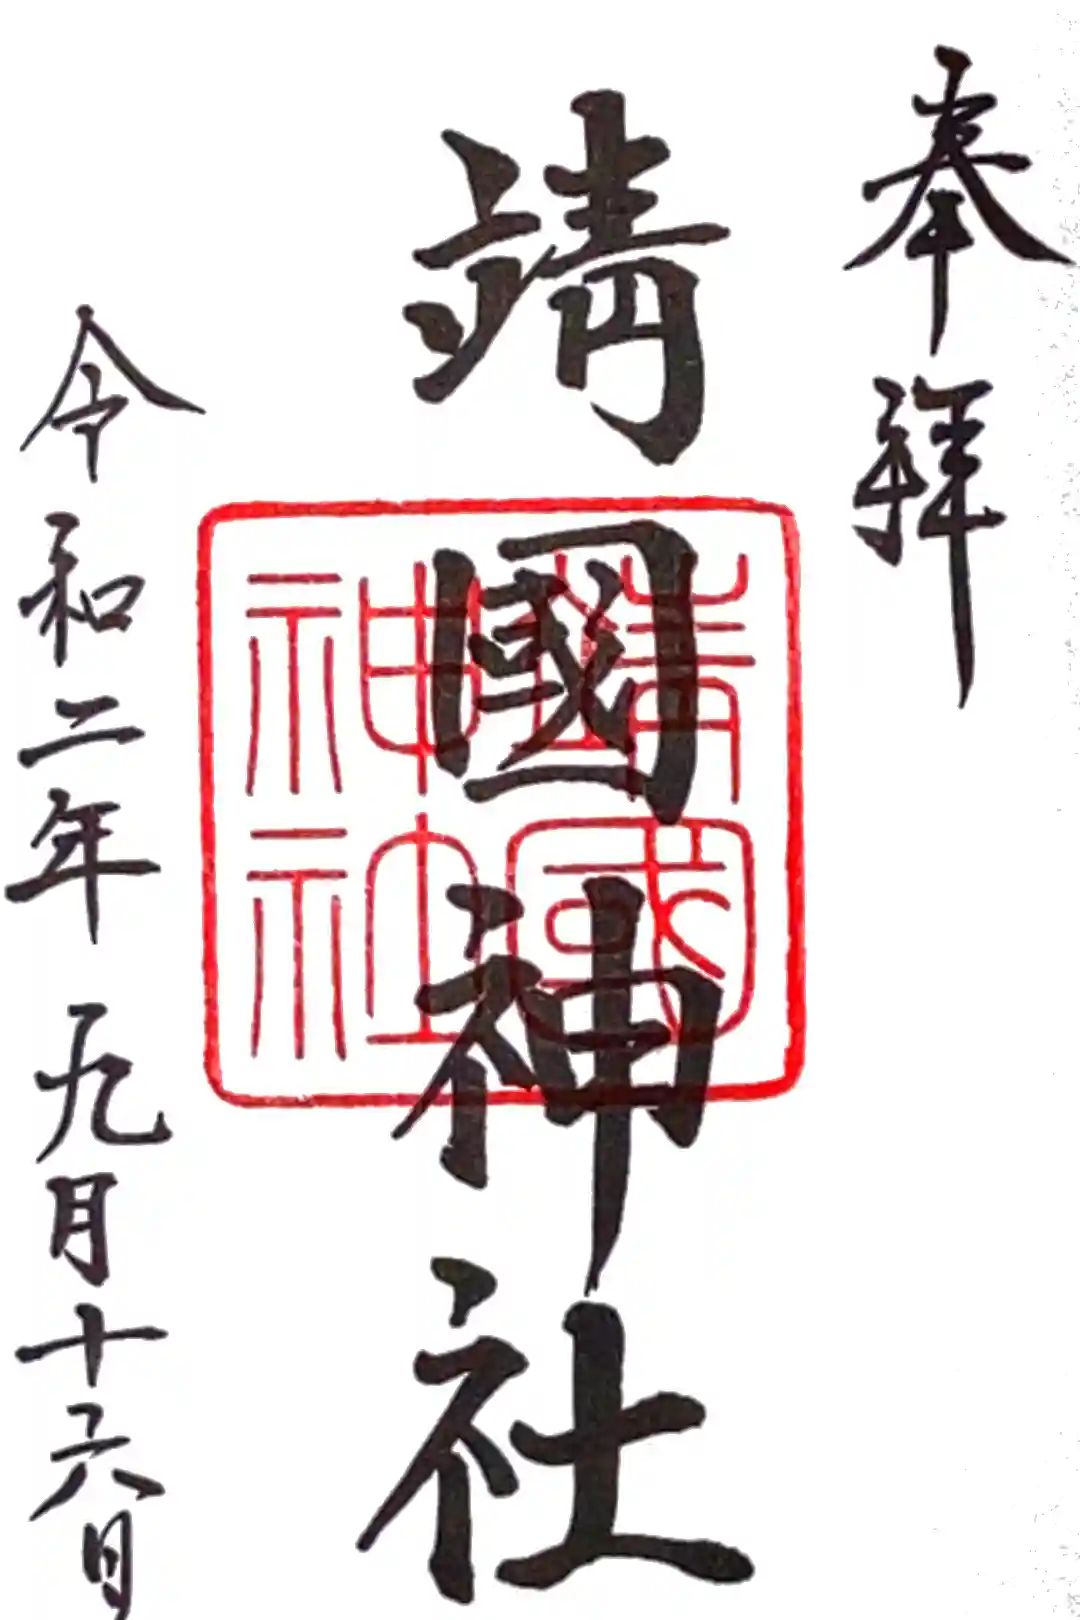 奉拜
靖國神社
靖國
神社
令和二年 九月十六日